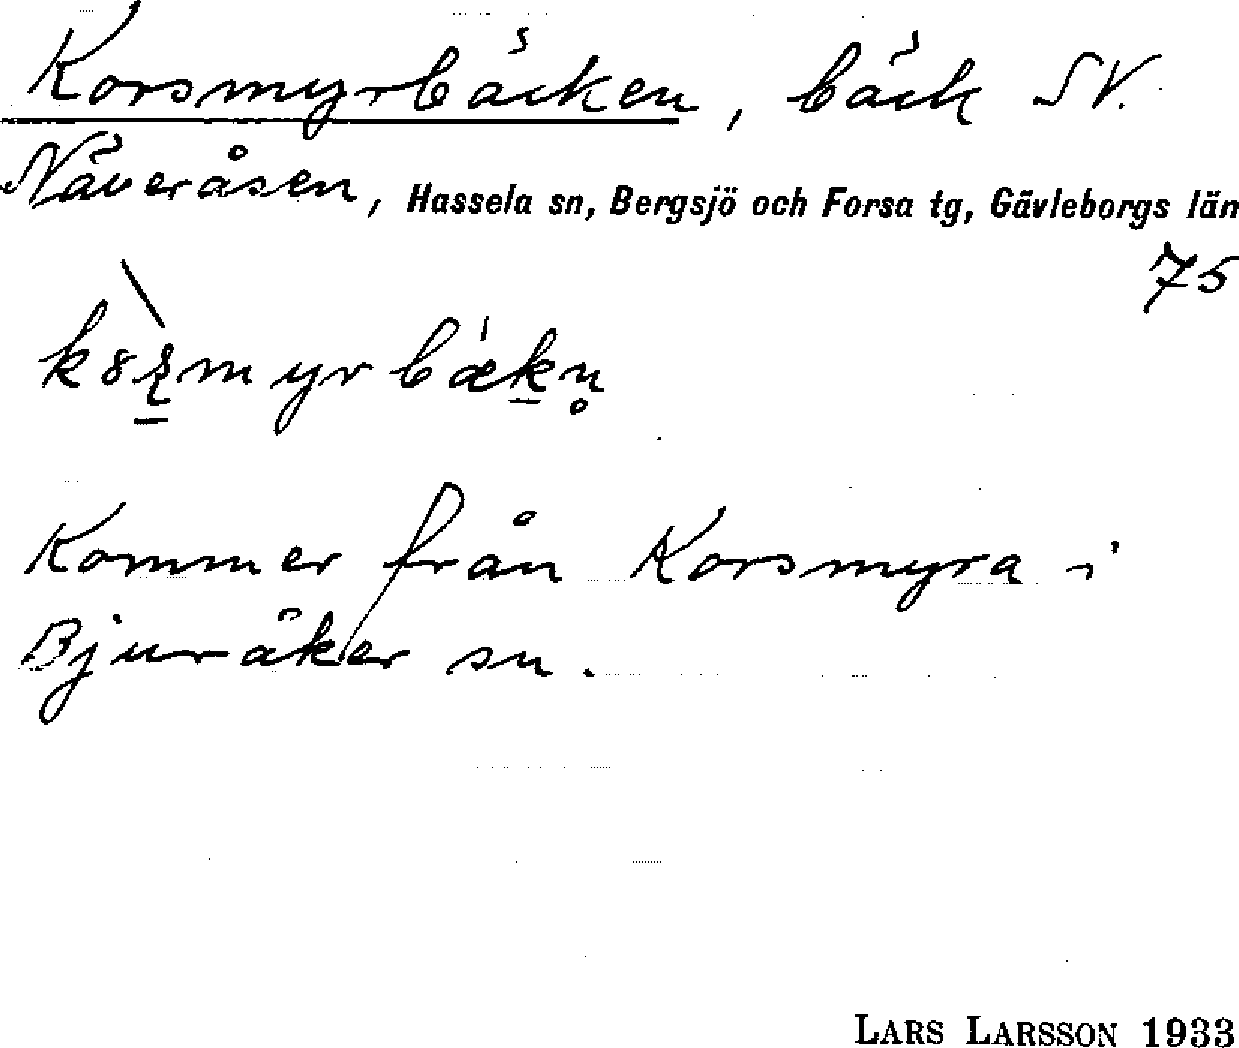 Korsmyrbäcken, bäck NV.
Näveråsen, Hassela sn, Bergsjö och Forsa tg, Gävleborgs län
75
Kommer från Korsmyra i
Bjuråker sn.
LARS LARSSON 1933